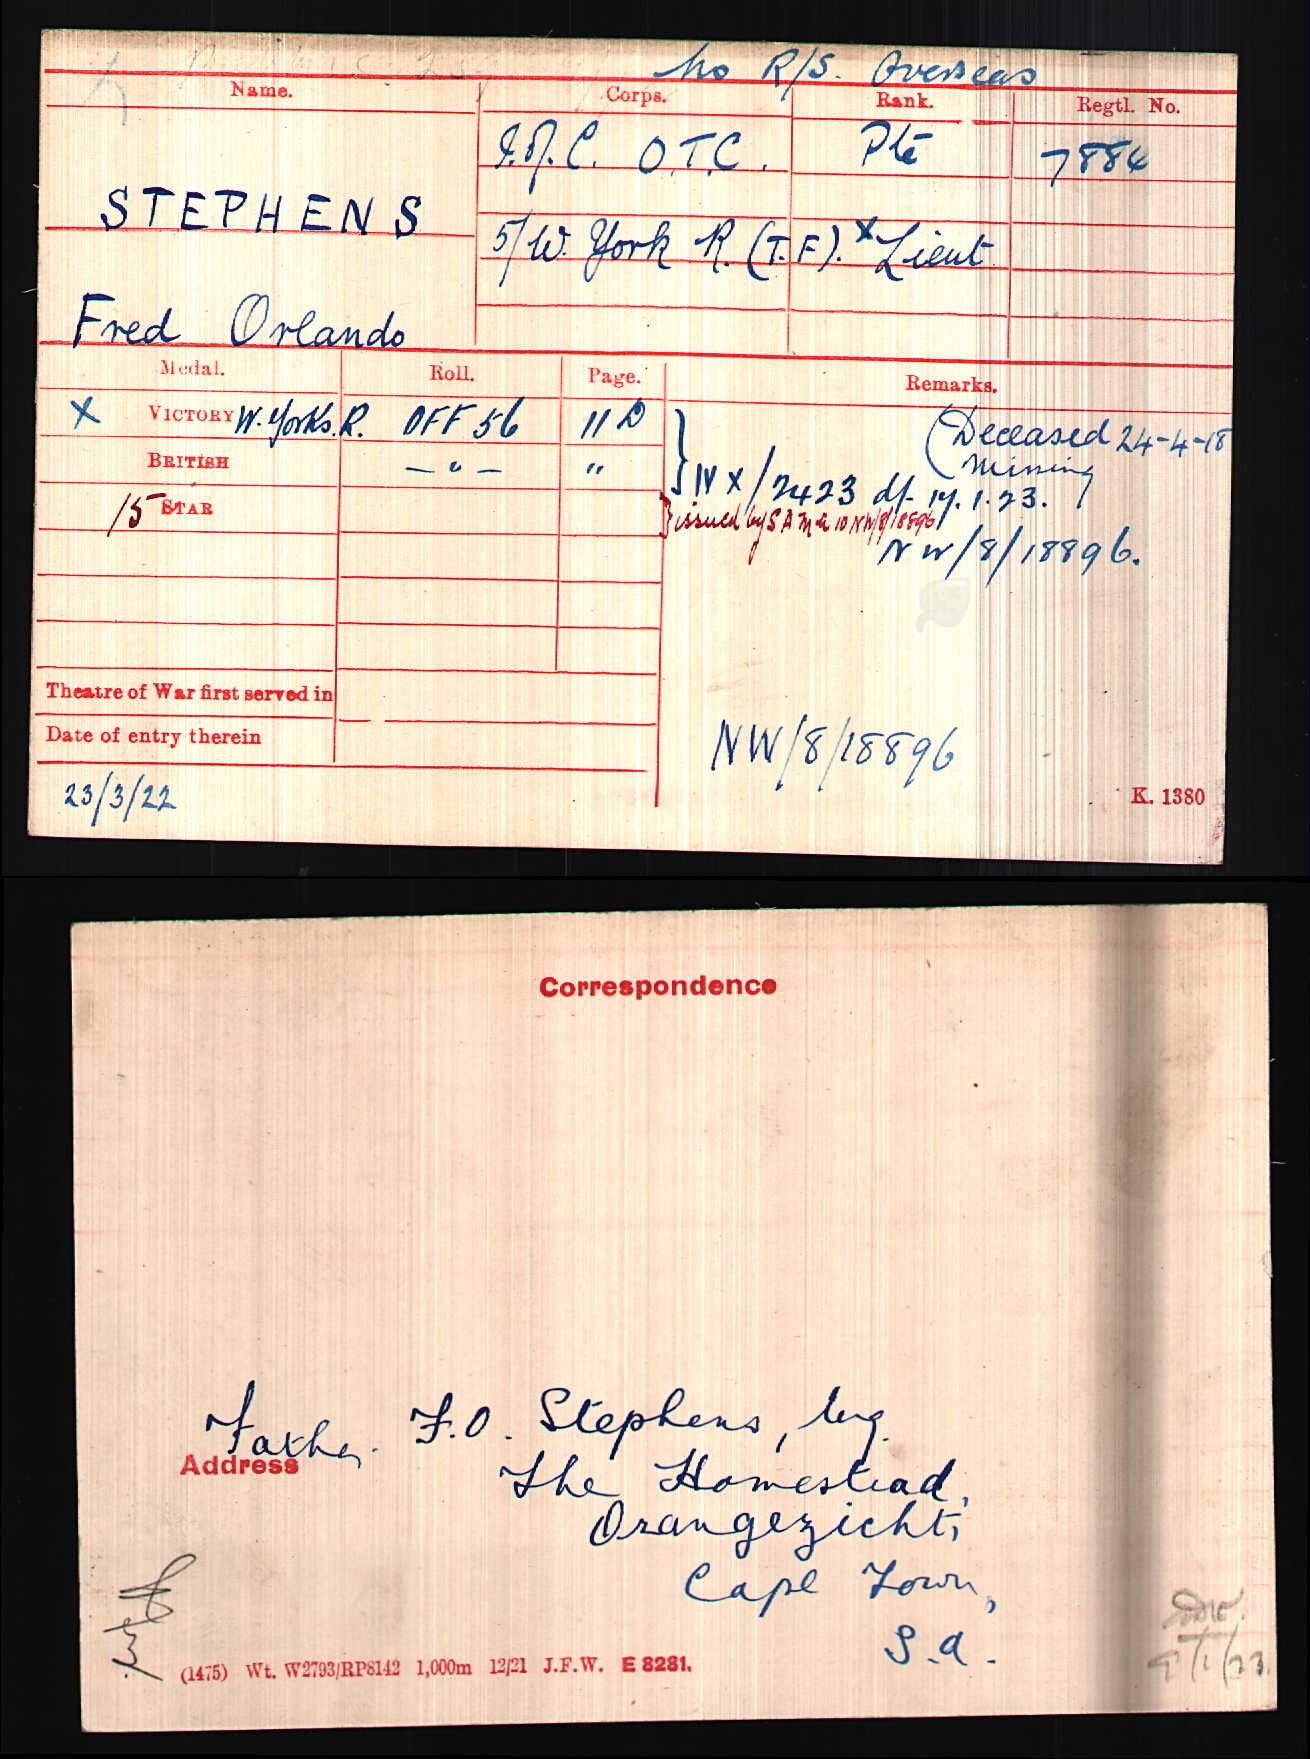 No R/S. Overseas
Name. Corps. Rank. Regtl. No.
O.T.C. Pte 7884
STEPHENS
5/W. York R. (T.F). x Lieut
Fred Orlando
Medal. Roll. Page. Remarks.
x VICTORY W. Yorks. R. OFF 56 11 D
(Deceased 24-4-18
BRITISH — " — "
Missing
IV x/2423 df 17.1.23.
15 STAR
issued by S A M R 10 NW/8/18896
NW/8/18896.
Theatre of War first served in
Date of entry therein
NW/8/18896
23/3/22
K. 1380
Correspondence
Father. F.O. Stephens,
Address
The Homestead,
Orangezicht,
Cape Town,
S.A.
9/1/23.
(1475) Wt. W2793/RP8142 1,000m 12/21 J.F.W. E 8281.